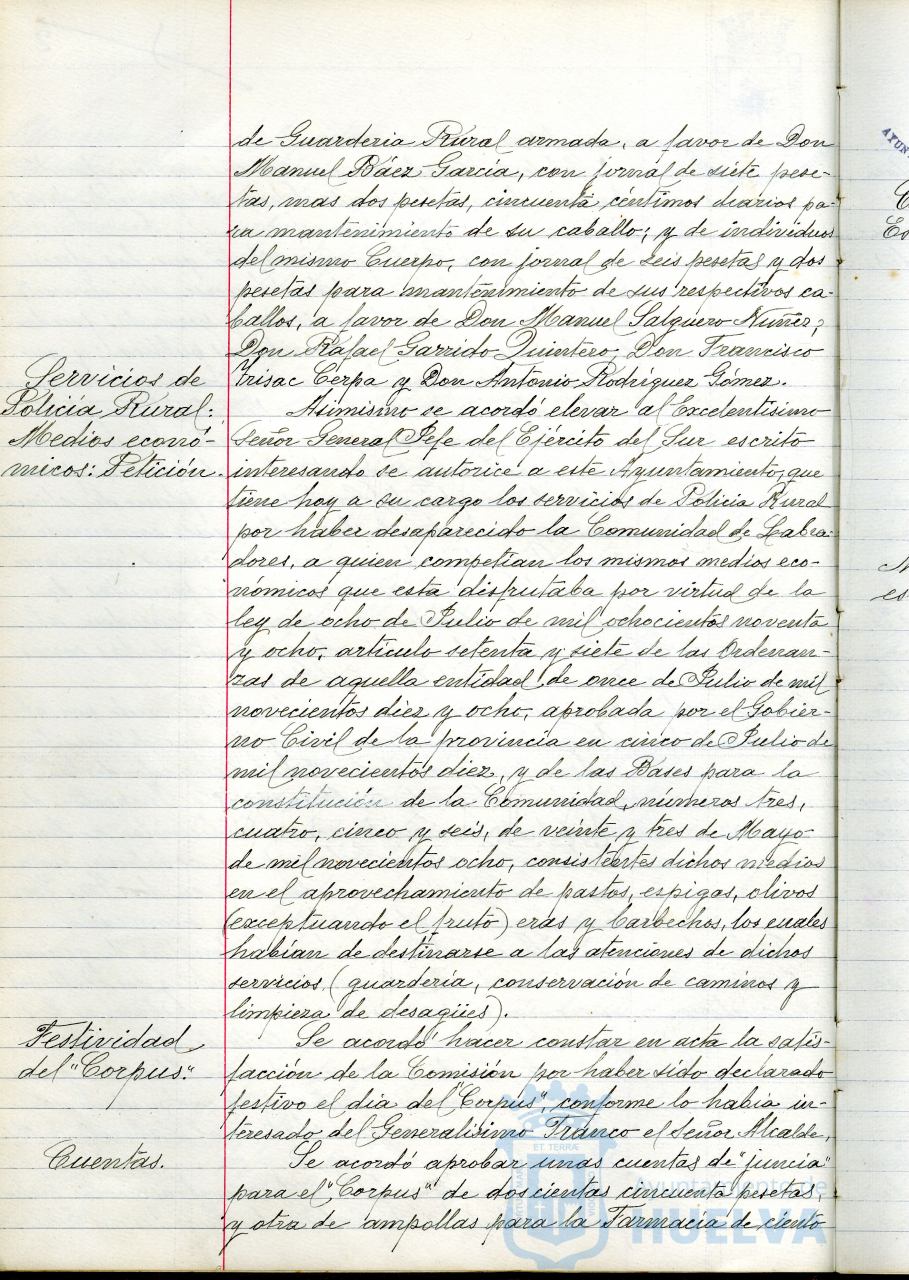 de Guarderia Rural armada, a favor de Don
Manuel Báez García, con jornal de siete pese-
tas, mas dos pesetas, cincuenta céntimos diarios pa-
ra mantenimiento de su caballo; y de individuos
del mismo Cuerpo, con jornal de seis pesetas y dos
pesetas para mantenimiento de sus respectivos ca-
ballos, a favor de Don Manuel Salguero Nuñez;
Don Rafael Garrido Quintero; Don Francisco
Trisac Cerpa y Don Antonio Rodríguez Gómez.
Servicios de
Policía Rural:
Medios econó-
micos: Petición.
Asimismo se acordó elevar al Excelentísimo
Señor General Jefe del Ejército del Sur escrito
interesando se autorice a este Ayuntamiento, que
tiene hoy a su cargo los servicios de Policia Rural
por haber desaparecido la Comunidad de Labra-
dores, a quien competían los mismos medios eco-
nómicos que esta disfrutaba por virtud de la
ley de ocho de Julio de mil ochocientos noventa
y ocho, artículo setenta y siete de las Ordenan-
zas de aquella entidad de once de Julio de mil
novecientos diez y ocho, aprobada por el Gobier-
no Civil de la provincia en cinco de Julio de
mil novecientos diez, y de las Bases para la
constitución de la Comunidad, números tres,
cuatro, cinco y seis, de veinte y tres de Mayo
de mil novecientos ocho, consistentes dichos medios
en el aprovechamiento de pastos, espigas, olivos
(exceptuando el fruto) eras y barbechos, los cuales
habían de destinarse a las atenciones de dichos
servicios (guardería, conservación de caminos y
limpieza de desagües).
Festividad
del "Corpus".
Se acordó hacer constar en acta la satis-
facción de la Comisión por haber sido declarado
festivo el día del "Corpus", conforme lo había in-
teresado del Generalísimo Franco el Señor Alcalde.
Cuentas.
Se acordó aprobar unas cuentas de "juncia"
para el "Corpus" de doscientas cincuenta pesetas,
y otra de ampollas para la Farmacia de ciento
Ayuntamiento de
HUELVA